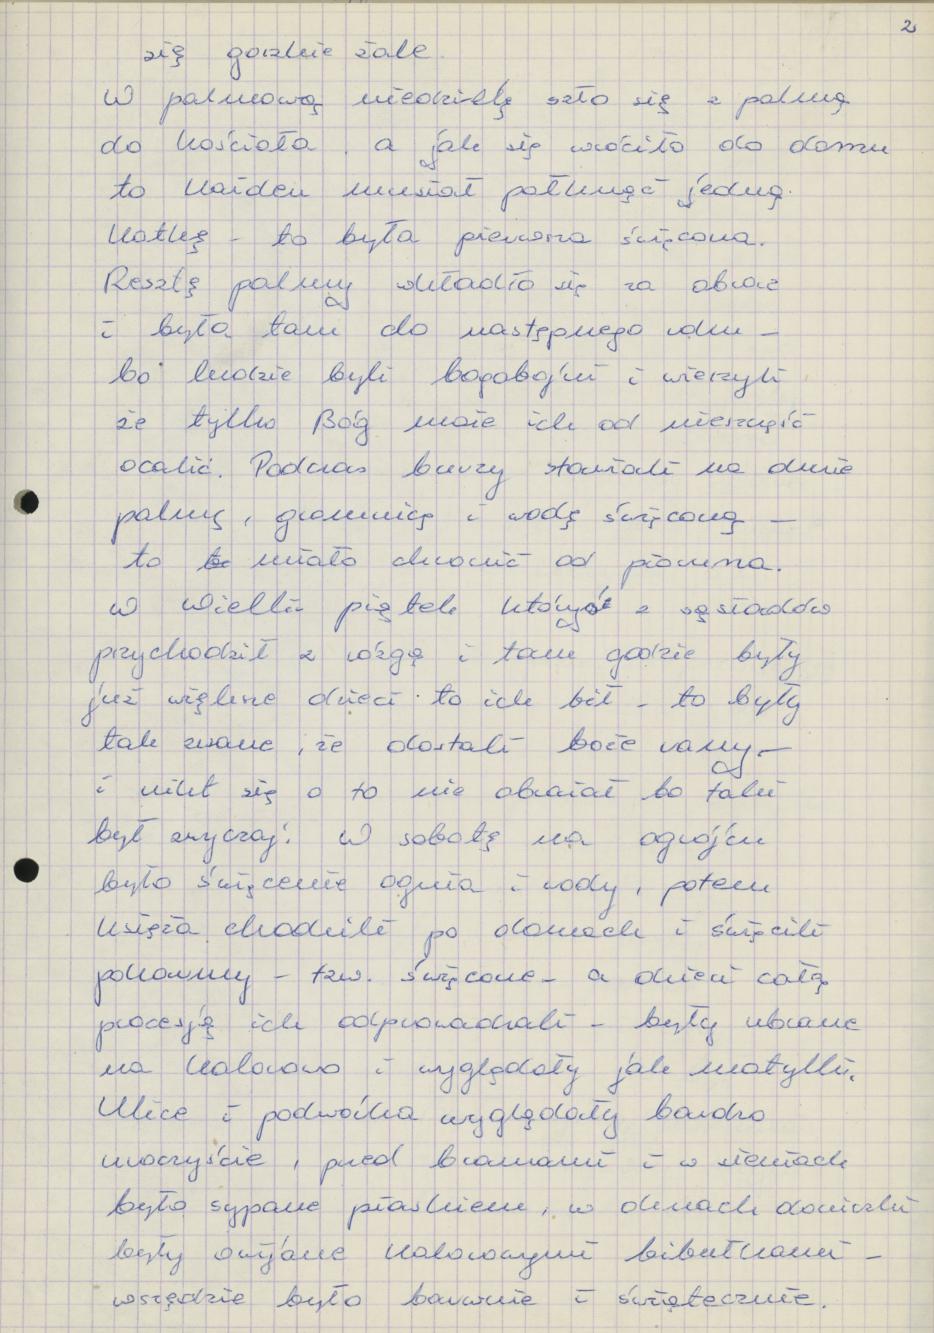 2
się gorzkie żale.
W palmową niedzielę szło się z palmą
do kościoła, a jak się wróciło do domu
to każden musiał połknąć jedną
kotkę – to była pierwsza święcona.
Resztę palmy wkładło się za obraz
i była tam do następnego roku –
bo ludzie byli bogobojni i wierzyli
że tylko Bóg może ich od nieszczęść
ocalić. Podczas burzy stawiali na oknie
palmę, gromnicę i wodę święconą –
to miało chronić od pioruna.
W Wielki piątek któryś z sąsiadów
przychodził z rózgą i tam gdzie były
już większe dzieci to ich bił – to były
tak zwane, że dostali boże rany –
i nikt się o to nie obrażał bo taki
był zwyczaj. W sobotę na ogrójcu
było święcenie ognia i wody, potem
księża chodzili po domach i święcili
pokarmy – tzw. święcone – a dzieci całą
procesją ich odprowadzali – były ubrane
na kolorowo i wyglądały jak motylki.
Ulice i podwórka wyglądały bardzo
uroczyście, przed bramami i w sieniach
było sypane piaskiem, w oknach doniczki
były owijane kolorowymi bibułkami –
wszędzie było barwnie i świątecznie.